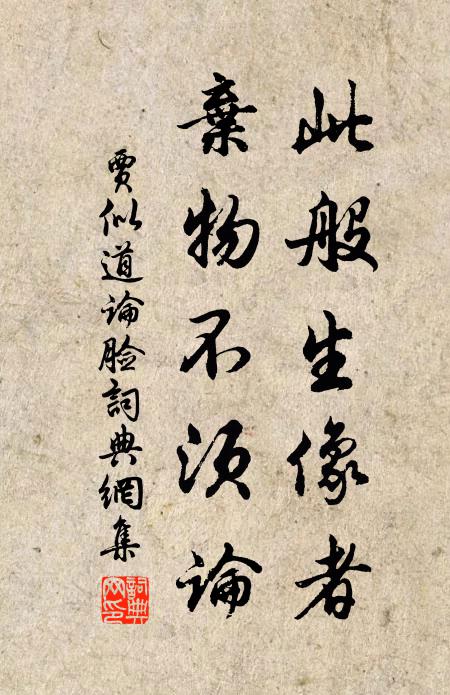 此般生像者
棄物不須論
賈似道論臉詞典網集
詞典
網印